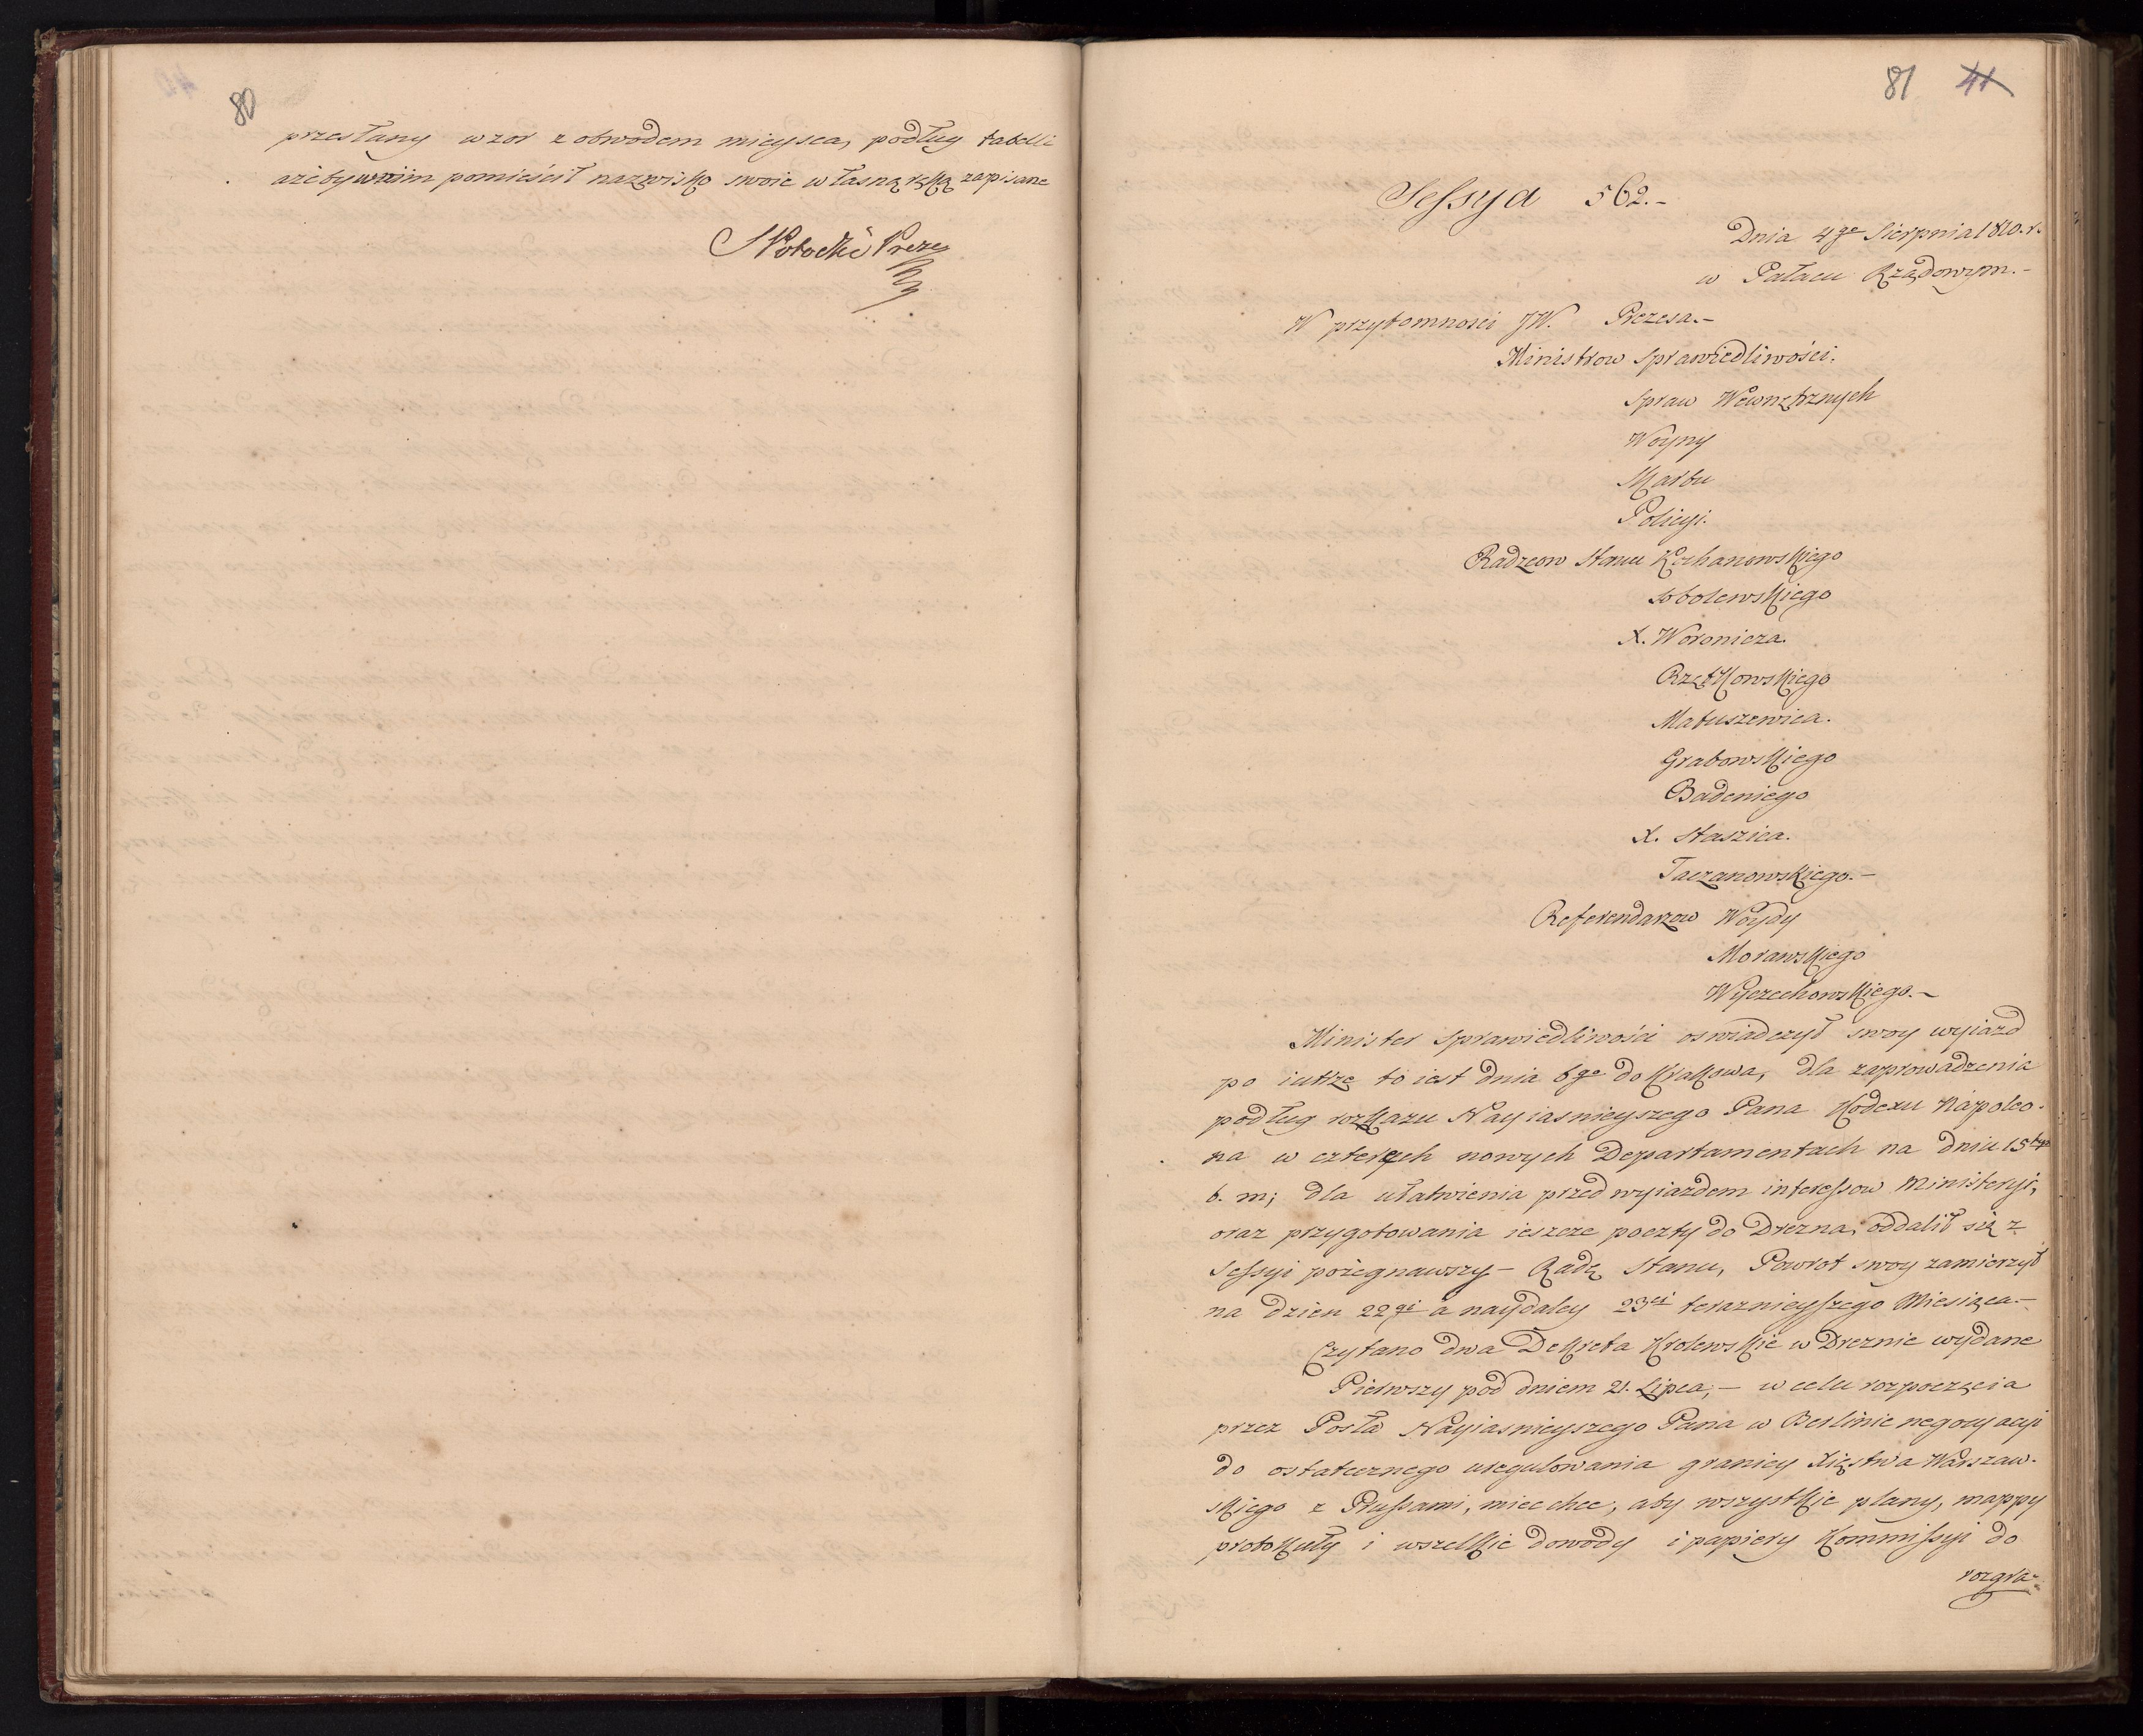 80
przesłany wzor z obwodem mieysca, podług tabelli
ażeby w nim pomieścił nazwisko swoie własną ręką zapisane
SPotocki Prezes
81 41
Sessya 562.-
Dnia 4go Sierpnia 1810. r.
w Pałacu Rządowym.-
W przytomnosci JW. Prezesa.-
Ministrow Sprawiedliwości.
Spraw Wewnętrznych
Woyny
Skarbu
Policyi.
Radzcow Stanu Kochanowskiego
Sobolewskiego
X. Woronicza.
Rzętkowskiego
Matuszewica.
Grabowskiego
Badeniego
X. Staszica.
Taczanowskiego.-
Referendarzow Woydy
Morawskiego
Wyczechowskiego.-
Minister Sprawiedliwości oswiadczył swoy wyiazd
po iutrze to iest dnia 6go do Krakowa, dla zaprowadzenia
podług rozkazu Nayiasnieyszego Pana Kodexu Napoleo-
na w czterech nowych Departamentach na dniu 15tym
b. m; dla ułatwienia przed wyiazdem interessow Ministeryi,
oraz przygotowania ieszcze poczty do Drezna, oddalił się z
Sessyi pożegnawszy - Radę Stanu, Powrot swoy zamierzył
na dzien 22gi a naydaley 23ci teraznieyszego Miesiąca.-
Czytano dwa Dekreta Krolewskie w Dreznie wydane
Pierwszy pod dniem 21. Lipca; - w celu rozpoczęcia
przez Posła Nayiasnieyszego Pana w Berlinie negocyacyi
do ostatecznego uregulowania granicy Xięstwa Warszaw-
skiego z Prussami, miec chce, aby wszystkie plany, mappy
protokuły i wszelkie dowody i papiery Kommissyi do
rozgra-